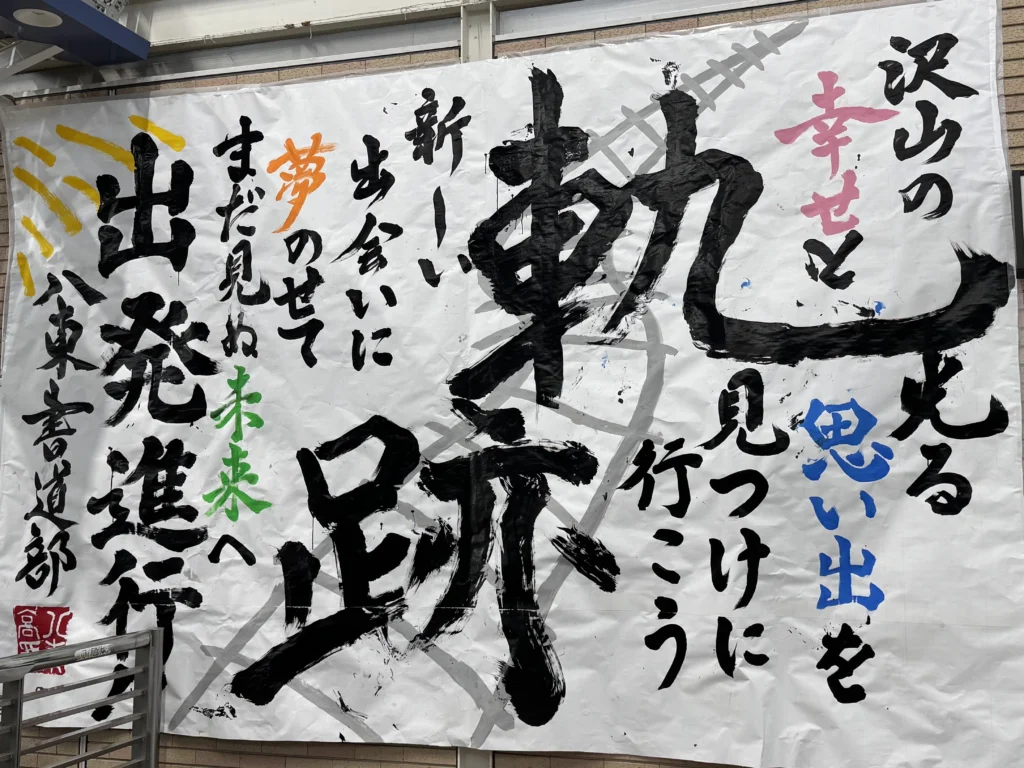 沢山の
幸せと
光る
思い出を
見つけに
行こう
軌跡
新しい
出会いに
夢のせて
まだ見ぬ未来へ
出発進行
八東書道部